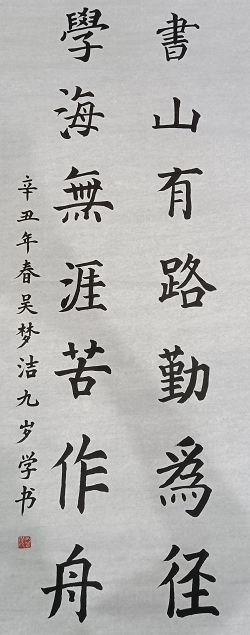 書山有路勤爲径
學海無涯苦作舟
辛丑年春吴梦洁九岁学书